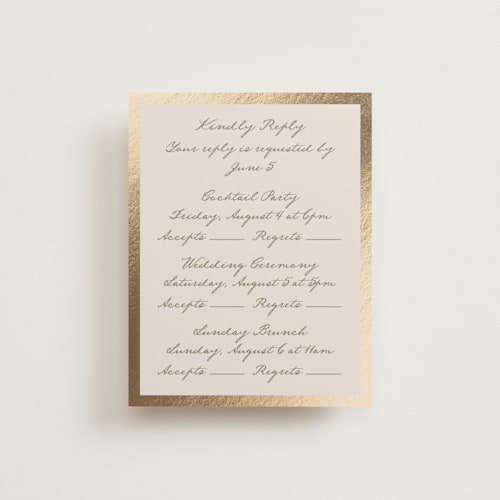 Kindly Reply
Your reply is requested by
June 5
Cocktail Party
Friday, August 4 at 6pm
Accepts ____ Regrets ____
Wedding Ceremony
Saturday, August 5 at 5pm
Accepts ____ Regrets ____
Sunday Brunch
Sunday, August 6 at 11am
Accepts ____ Regrets ____